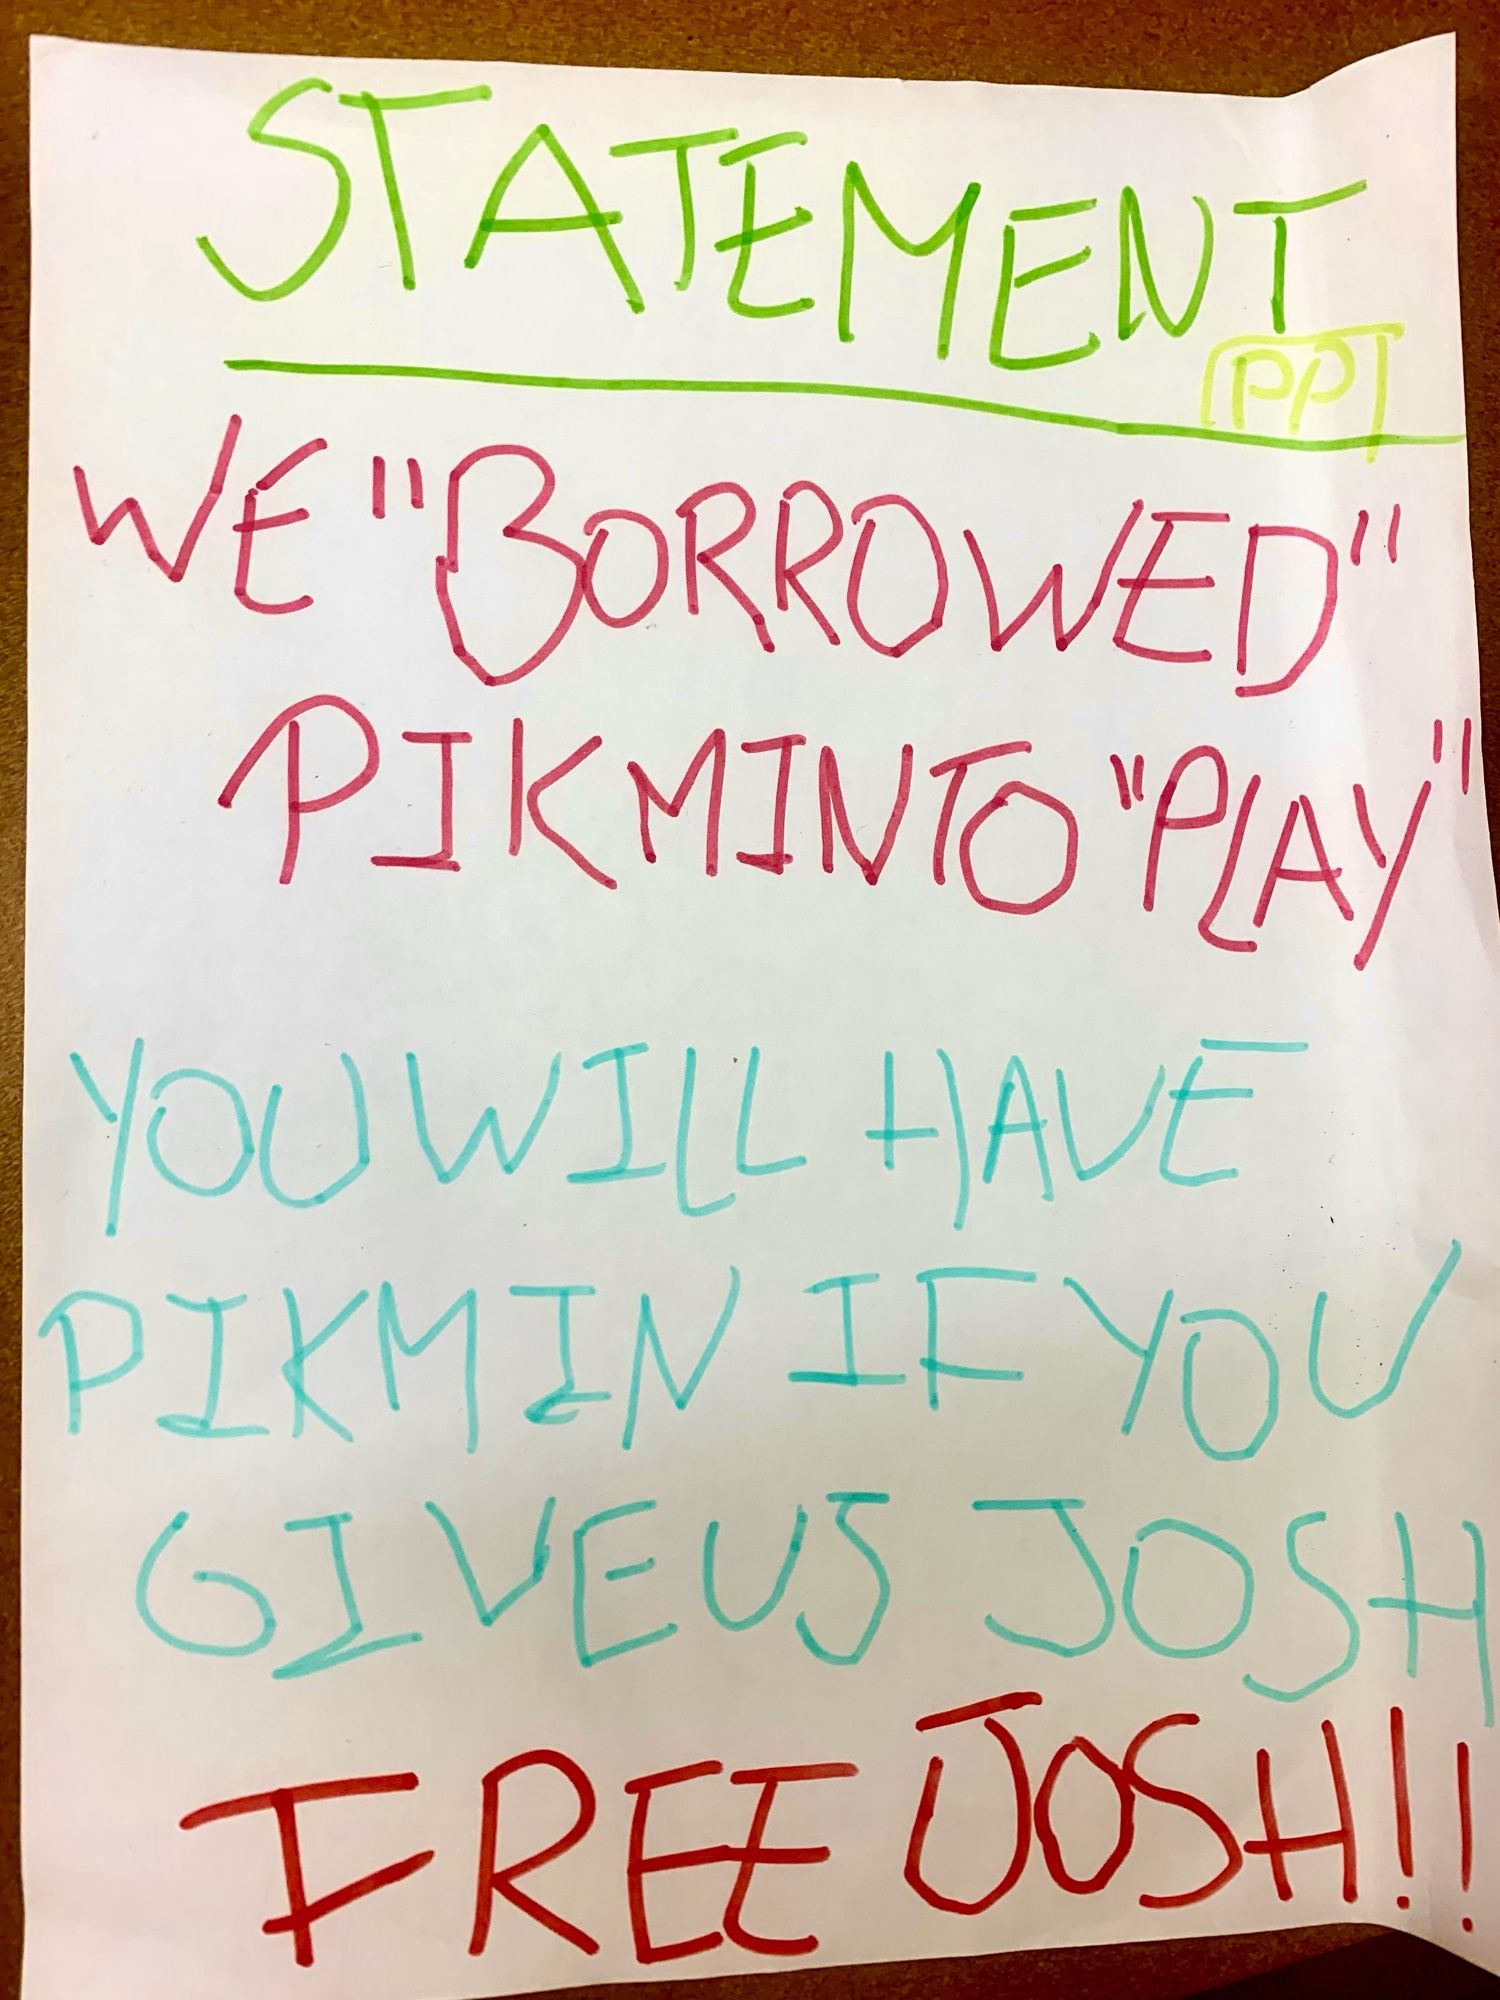 STATEMENT
PP
WE "BORROWED"
PIKMIN TO "PLAY"
YOU WILL HAVE
PIKMIN IF YOU
GIVE US JOSH
FREE JOSH!!